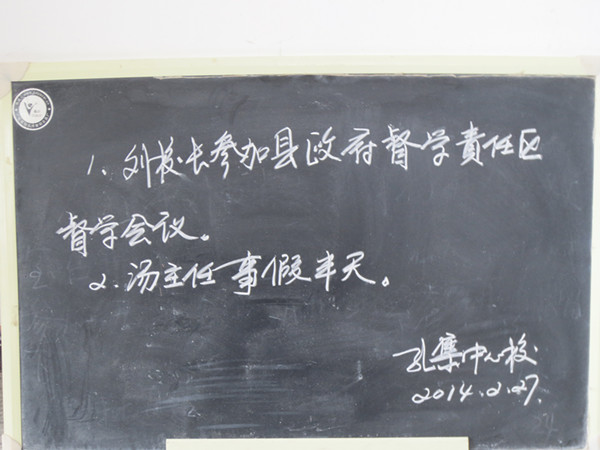 1、刘校长参加县政府督学责任区
督学会议。
2.汤主任事假半天。
孔集中心校
2014.2.27.